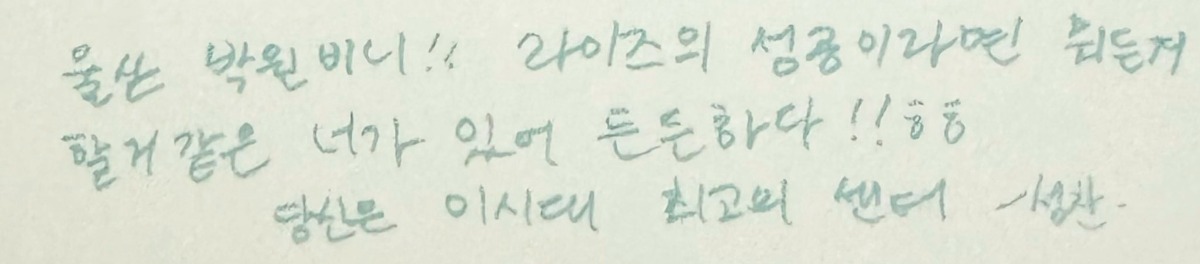 울산 박원비니!! 라이즈의 성공이라면 뭐든지
할거같은 너가 있어 든든하다!! ㅎㅎ
당신은 이시대 최고의 센터 -성찬-